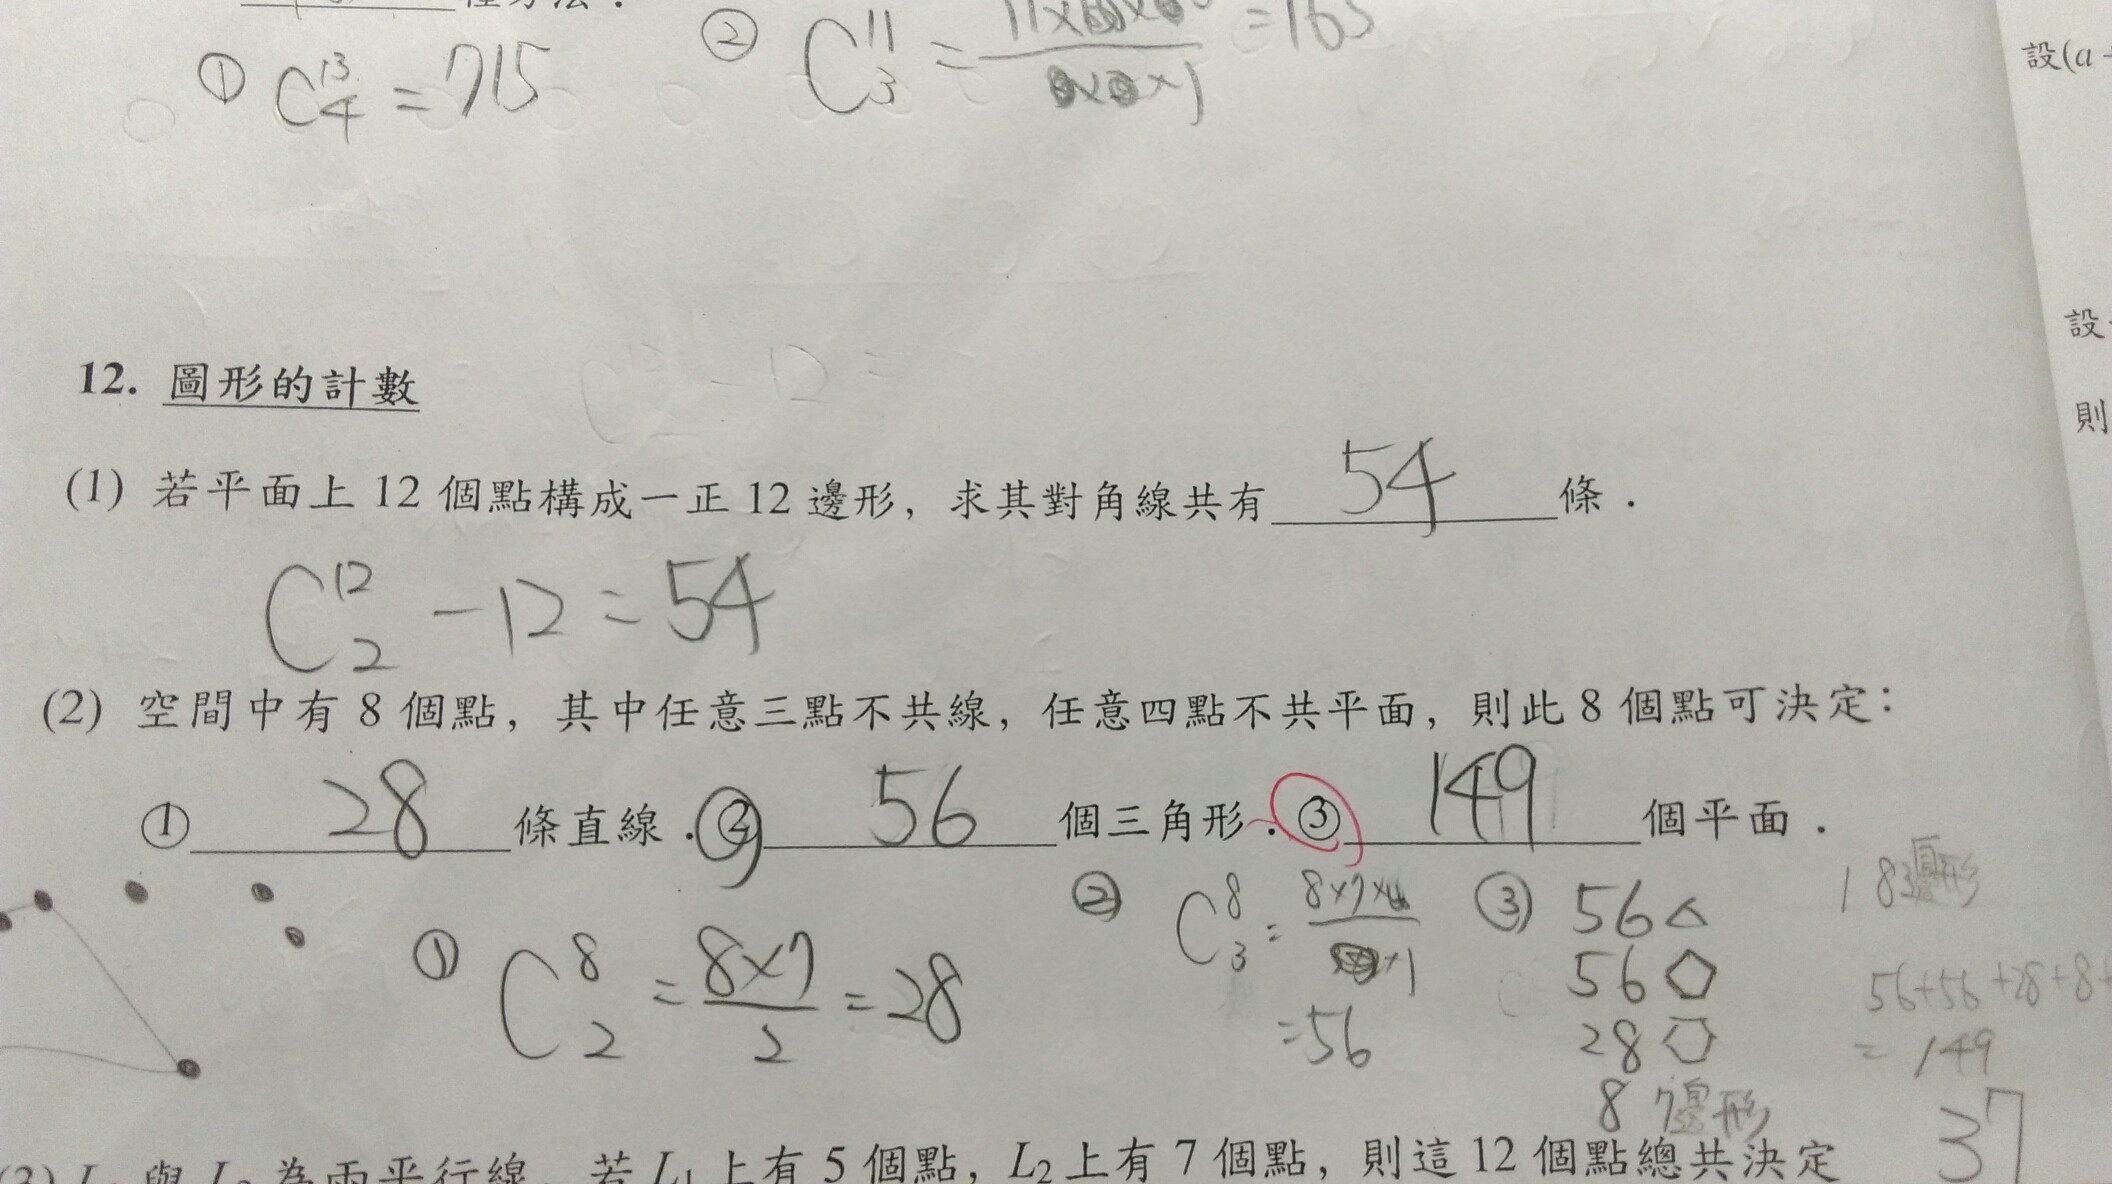 ② C 11 3 = = 165
① C 13 4 = 715
設(a
設
則
12. 圖形的計數
(1) 若平面上 12 個點構成一正 12 邊形，求其對角線共有 54 條．
C 12 2 - 12 = 54
(2) 空間中有 8 個點，其中任意三點不共線，任意四點不共平面，則此 8 個點可決定：
① 28 條直線．② 56 個三角形．③ 149 個平面．
① C 8 2 = 8×7 / 2 = 28
② C 8 3 = 8×7× = 56
③ 56
56
28
8 7邊形
1 8邊形
56+56+28+8+
= 149
37
與 為兩平行線，若 L1 上有 5 個點，L2 上有 7 個點，則這 12 個點總共決定